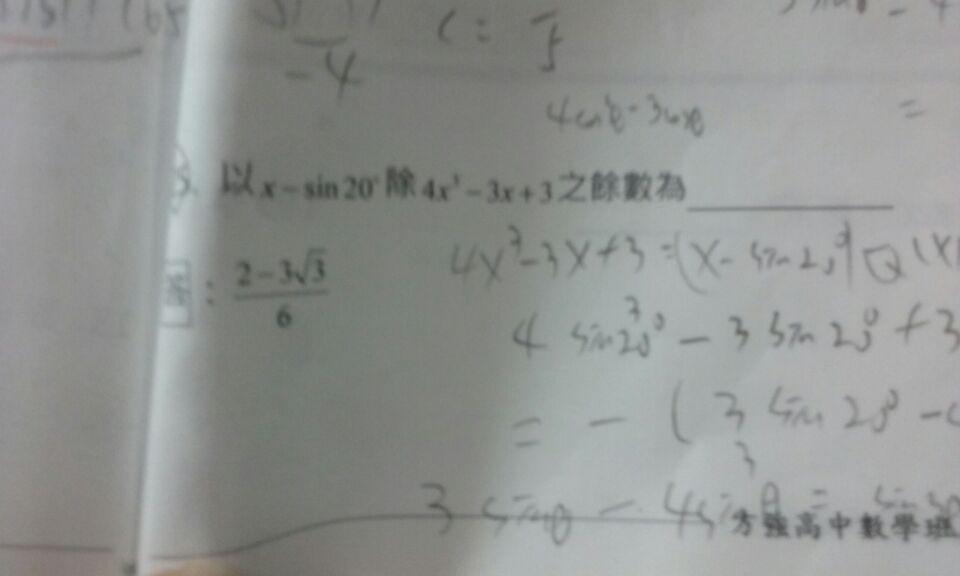 -4
4cos³θ-3cosθ
=
5. 以 x-sin 20° 除 4x³-3x+3 之餘數為
4x³-3x+3=(x-sin20°)Q(x)
答: (2-3√3)/6
4 sin³20° - 3 sin 20° + 3
= - ( 3 sin 20° - 4
3 sinθ - 4sin³θ = sin3θ
方強高中數學班